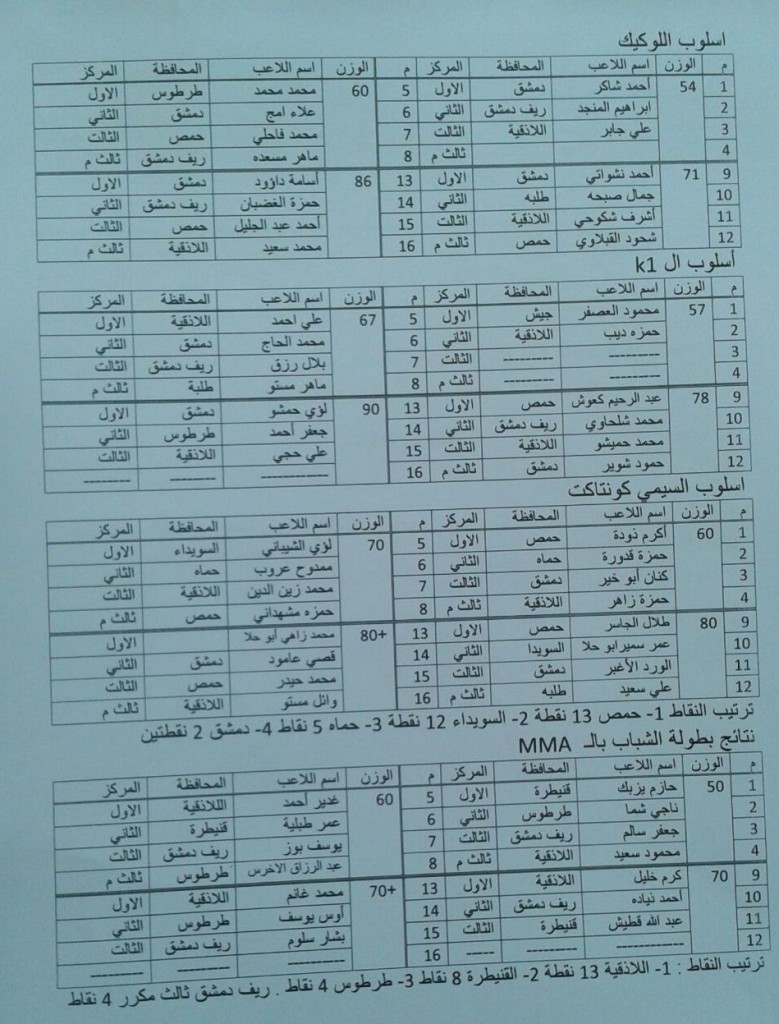 اسلوب اللوكيك
م الوزن اسم اللاعب المحافظة المركز م الوزن اسم اللاعب المحافظة المركز
1 54 أحمد شاكر دمشق الاول 5 60 محمد محمد طرطوس الاول
2 ابراهيم المنجد ريف دمشق الثاني 6 علاء امج دمشق الثاني
3 علي جابر اللاذقية الثالث 7 محمد فاحلي حمص الثالث
4 ثالث م 8 ماهر مسعده ريف دمشق ثالث م
9 71 أحمد نشواتي دمشق الاول 13 86 أسامة داؤود دمشق الاول
10 جمال صبحه طلبه الثاني 14 حمزة الغضبان ريف دمشق الثاني
11 أشرف شكوحي اللاذقية الثالث 15 أحمد عبد الجليل حمص الثالث
12 شحود القبلاوي حمص ثالث م 16 محمد سعيد اللاذقية ثالث م
أسلوب ال k1
م الوزن اسم اللاعب المحافظة المركز م الوزن اسم اللاعب المحافظة المركز
1 57 محمود العصفر جيش الاول 5 67 علي احمد اللاذقية الاول
2 حمزه ديب اللاذقية الثاني 6 محمد الحاج دمشق الثاني
3 --------- --------- الثالث 7 بلال رزق ريف دمشق الثالث
4 --------- --------- ثالث م 8 ماهر مستو طلبة ثالث م
9 78 عبد الرحيم كعوش حمص الاول 13 90 لؤي حمشو دمشق الاول
10 محمد شلحاوي ريف دمشق الثاني 14 جعفر أحمد طرطوس الثاني
11 محمد حميشو اللاذقية الثالث 15 علي حجي اللاذقية الثالث
12 حمود شوير دمشق ثالث م 16 ------------ -------- --------
اسلوب السيمي كونتاكت
م الوزن اسم اللاعب المحافظة المركز م الوزن اسم اللاعب المحافظة المركز
1 60 أكرم نودة حمص الاول 5 70 لؤي الشيباني السويداء الاول
2 حمزة قدورة حماه الثاني 6 ممدوح عروب حماه الثاني
3 كنان أبو خير دمشق الثالث 7 محمد زين الدين اللاذقية الثالث
4 حمزة زاهر اللاذقية ثالث م 8 حمزه مشهداني حمص ثالث م
9 80 طلال الجاسر حمص الاول 13 +80 محمد زاهي أبو حلا الاول
10 عمر سميرابو حلا السويدا الثاني 14 قصي عامود دمشق الثاني
11 الورد الأغبر دمشق الثالث 15 محمد حيدر حمص الثالث
12 علي سعيد طلبه ثالث م 16 وائل مستو اللاذقية ثالث م
ترتيب النقاط 1- حمص 13 نقطة 2- السويداء 12 نقطة 3- حماه 5 نقاط 4- دمشق 2 نقطتين
نتائج بطولة الشباب بالـ MMA
م الوزن اسم اللاعب المحافظة المركز م الوزن اسم اللاعب المحافظة المركز
1 50 حازم يزبك قنيطرة الاول 5 60 غدير أحمد اللاذقية الاول
2 ناجي شما طرطوس الثاني 6 عمر طبلية قنيطرة الثاني
3 جعفر سالم ريف دمشق الثالث 7 يوسف بوز ريف دمشق الثالث
4 محمود سعيد اللاذقية ثالث م 8 عبد الرزاق الاخرس طرطوس ثالث م
9 70 كرم خليل اللاذقية الاول 13 +70 محمد غانم اللاذقية الاول
10 أحمد نياده ريف دمشق الثاني 14 أوس يوسف طرطوس الثاني
11 عبد الله قطيش قنيطرة الثالث 15 بشار سلوم ريف دمشق الثالث
12 ------------ --------- ----- 16 --------- --------- ---------
ترتيب النقاط : 1- اللاذقية 13 نقطة 2- القنيطرة 8 نقاط 3- طرطوس 4 نقاط . ريف دمشق ثالث مكرر 4 نقاط